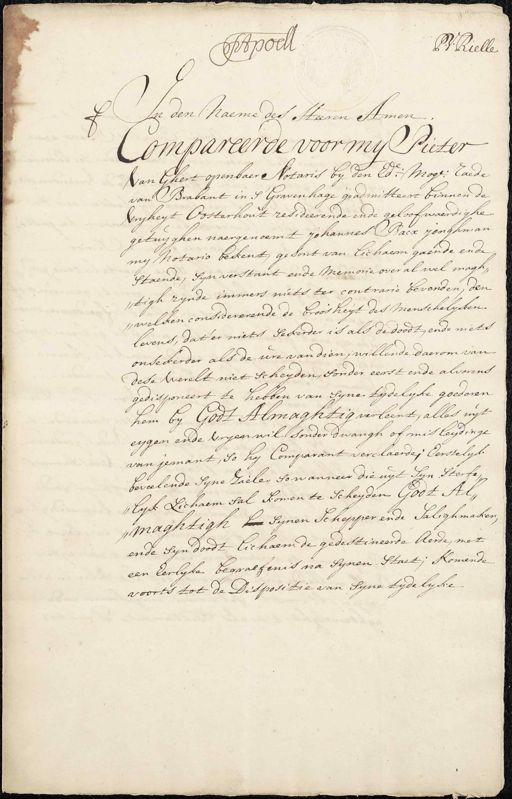 Pr Rielle
In den Naeme des Heren Amen.
Compareerde voor my Pieter
van Ghert openbaer Notaris by den Ed: Mog: Raede
van Brabant in S Gravenhage geadmitteert binnen de
vryheyt Oosterhout residerende ende geloofwaerdighe
getuyghen naergenoemt Johannes Pacx jonghman
my Notario bekent, gesont van lichaem gaende ende
staende, syn verstant ende Memorie over al wel magh„
„tigh zynde immers niets ter contrarie bevonden, den
„welken considererende de broosheyt des menschelycken
levens, dat er niets sekerder is als de doodt, ende niets
onsekerder als de ure van dien, willende daerom van
dese werelt niet scheyden, sonder eerst ende alvorens
gedisponeert te hebben van syne tydelyke goederen
hem by Godt Almaghtig verleent, alles uyt
eygen ende vryen wil sonder dwangh of misleydinge
van jemant, so hy Comparant verclaerde; Eerstelyk
beveelende syne Ziele, so wanneer die uyt syn sterfe„
„lyk Lichaem sal komen te scheyden Godt Al„
„maghtigh synen Schepper ende Salighmaker,
ende syn doodt lichaem de gedestineerde Aerde, met
een Eerlyke begraefenis na synen staet; komende
voorts tot de Dispositie van syne tydelyke